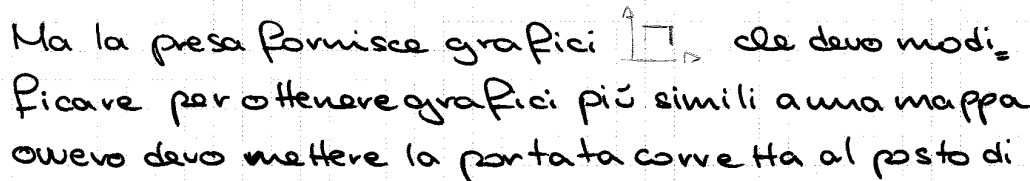 Ma la presa fornisce grafici che devo modi=
ficare per ottenere grafici più simili a una mappa
ovvero devo mettere la portata corretta al posto di